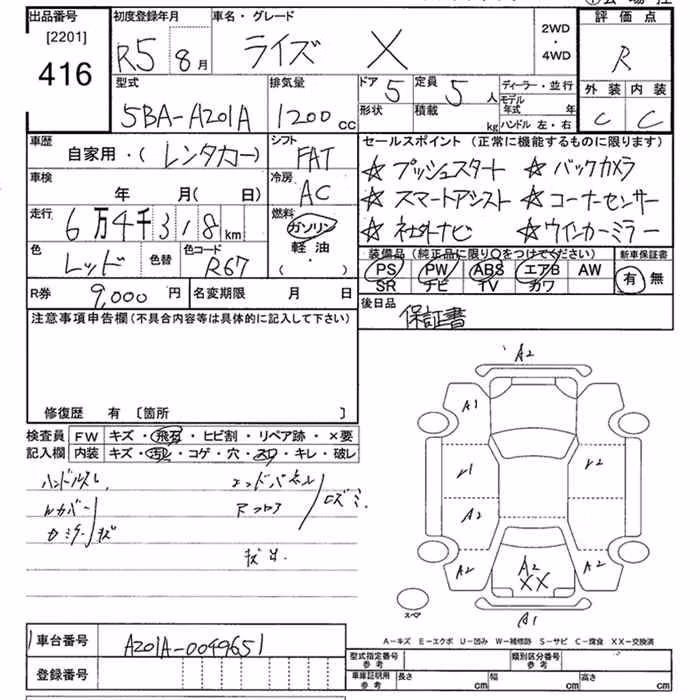 出品番号 [2201] 416
初度登録年月 R5 8月
車名・グレード ライズ X
2WD・4WD
評価点 R
外装 C 内装 C
型式 5BA-A201A
排気量 1200cc
ドア 5 定員 5人
形状 積載 kg
ディーラー・並行
モデル年式 年
ハンドル 左・右
車歴 自家用・(レンタカー)
シフト FAT
車検 年 月(日)
冷房 AC
走行 6万4千318km
燃料 ガソリン 軽油 (・)
色 レッド 色替 色コード R67
R券 9,000円 名変期限 月 日
セールスポイント(正常に機能するものに限ります)
☆プッシュスタート ☆バックカメラ
☆スマートアシスト ☆コーナーセンサー
☆社外ナビ ☆ウインカーミラー
装備品(純正品に限り○をつけてください) 新車保証書
PS PW ABS エアB AW 有 無
SR ナビ TV カワ
後日品 保証書
注意事項申告欄(不具合内容等は具体的に記入して下さい)
修復歴 有〔箇所 〕
検査員記入欄
FW キズ・飛石・ヒビ割・リペア跡・×要
内装 キズ・汚レ・コゲ・穴・スリ・キレ・破レ
ハンドルスレ エンドパネル
Rフロア
キズ
A2
A1
A2
A2
A2
A2
A2
XX
A1
スペア
A-キズ E-エクボ U-凹み W-補修跡 S-サビ C-腐食 XX-交換済
車台番号 A201A-0049651
登録番号
型式指定番号 参考 類別区分番号 参考
車庫証明用 参考 長さ cm 幅 cm 高さ cm